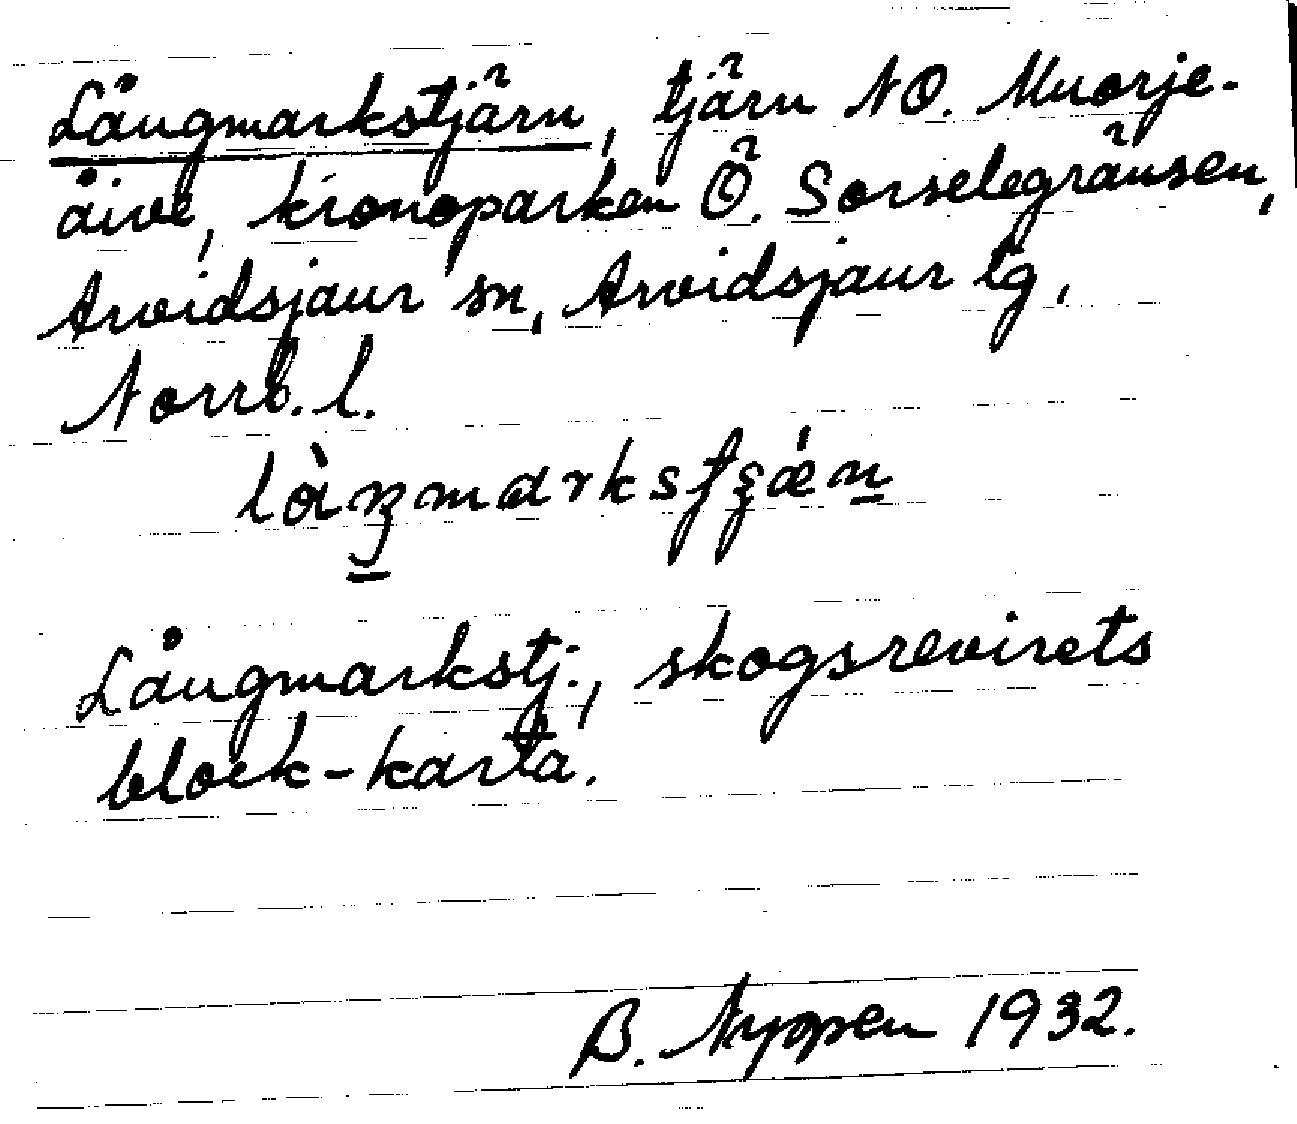 Långmarkstjärn, tjärn NO. Muorje-
åive, kronoparken Ö. Sorselegränsen,
Arvidsjaur sn, Arvidsjaur lg,
Norrb. l.
Långmarkstj., skogsrevirets
block-karta.
B. Nyppen 1932.